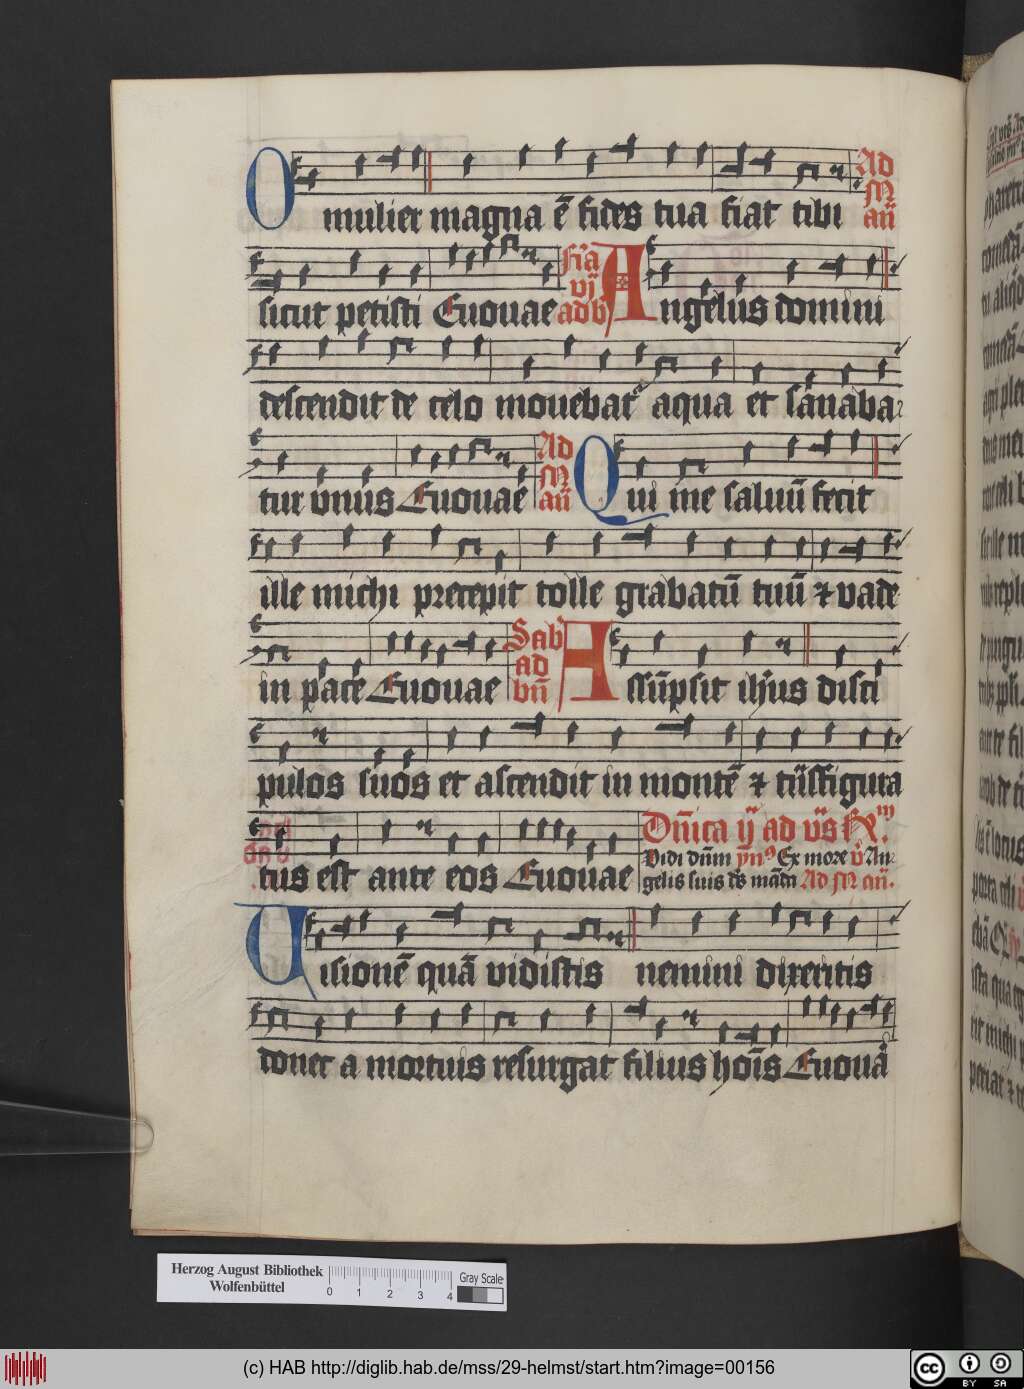 O mulier magna ē fides tua fiat tibi Ad M añ
sicut petisti Euouae Fr̃a vj ad b Angelus domini
descendit de celo mouebatͬ aqua et sanaba
tur vnus Euouae Ad M añ Qui me saluū fecit
ille michi precepit tolle grabatū tuū ⁊ vade
in pace Euouae Sabb ad bñ Assūpsit ih̄us disci
pulos suos et ascendit in montē ⁊ trāsfigura
tus est ante eos Euouae Dñica ij ad vs̄ R
Vidi dūm ymꝰ Ex more v̄ An
gelis suis ds̄ māda Ad M añ.
Uisionē quā vidistis nemini dixeritis
donec a mortuis resurgat filius hoīs Euoua
Herzog August Bibliothek
Wolfenbüttel
0 1 2 3 4
Gray Scale
(c) HAB http://diglib.hab.de/mss/29-helmst/start.htm?image=00156
cc BY SA